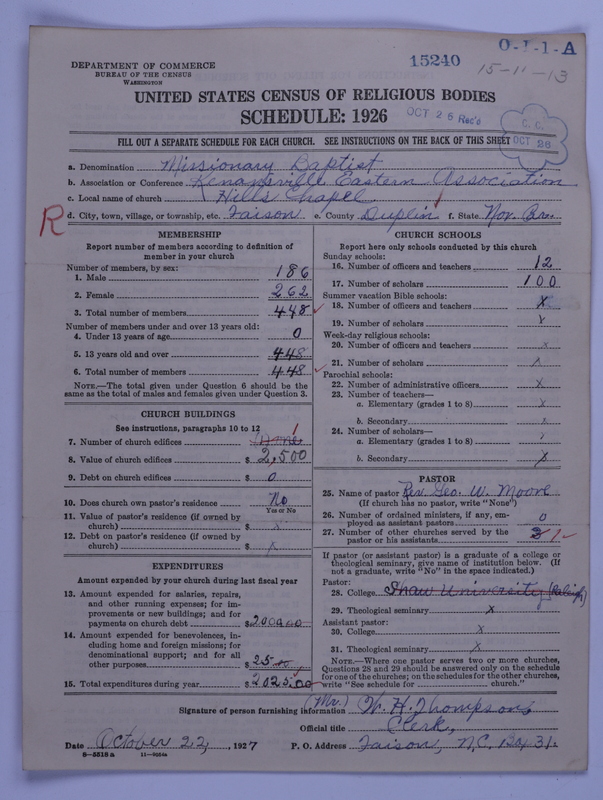 O-1-1-A
DEPARTMENT OF COMMERCE
BUREAU OF THE CENSUS
WASHINGTON
15240
15-11-13
UNITED STATES CENSUS OF RELIGIOUS BODIES
SCHEDULE: 1926
OCT 26 Rec'd
C. C.
OCT 28
FILL OUT A SEPARATE SCHEDULE FOR EACH CHURCH. SEE INSTRUCTIONS ON THE BACK OF THIS SHEET
a. Denomination Missionary Baptist
b. Association or Conference Kenansville Eastern Association
c. Local name of church Hills Chapel
R d. City, town, village, or township, etc. Faison e. County Duplin f. State Nor. Car.
MEMBERSHIP
Report number of members according to definition of
member in your church
Number of members, by sex:
1. Male 186
2. Female 262
3. Total number of members 448
Number of members under and over 13 years old:
4. Under 13 years of age 0
5. 13 years old and over 448
6. Total number of members 448
NOTE.—The total given under Question 6 should be the
same as the total of males and females given under Question 3.
CHURCH BUILDINGS
See instructions, paragraphs 10 to 12
7. Number of church edifices 1
8. Value of church edifices $ 2,500
9. Debt on church edifices $ 0
10. Does church own pastor's residence No
Yes or No
11. Value of pastor's residence (if owned by
church) $ x
12. Debt on pastor's residence (if owned by
church) $ x
EXPENDITURES
Amount expended by your church during last fiscal year
13. Amount expended for salaries, repairs,
and other running expenses; for im-
provements or new buildings; and for
payments on church debt $ 2000.00
14. Amount expended for benevolences, in-
cluding home and foreign missions; for
denominational support; and for all
other purposes $ 25.00
15. Total expenditures during year $ 2025.00
CHURCH SCHOOLS
Report here only schools conducted by this church
Sunday schools:
16. Number of officers and teachers 12
17. Number of scholars 100
Summer vacation Bible schools:
18. Number of officers and teachers x
19. Number of scholars x
Week-day religious schools:
20. Number of officers and teachers x
21. Number of scholars x
Parochial schools:
22. Number of administrative officers x
23. Number of teachers—
a. Elementary (grades 1 to 8) x
b. Secondary x
24. Number of scholars—
a. Elementary (grades 1 to 8) x
b. Secondary x
PASTOR
25. Name of pastor Rev. Geo. W. Moore
(If church has no pastor, write "None")
26. Number of ordained ministers, if any, em-
ployed as assistant pastors 0
27. Number of other churches served by the
pastor or his assistants
If pastor (or assistant pastor) is a graduate of a college or
theological seminary, give name of institution below. (If
not a graduate, write "No" in the space indicated.)
Pastor:
28. College Shaw University (Raleigh)
29. Theological seminary x
Assistant pastor:
30. College x
31. Theological seminary x
NOTE.—Where one pastor serves two or more churches,
Questions 28 and 29 should be answered only on the schedule
for one of the churches; on the schedules for the other churches,
write "See schedule for church."
Signature of person furnishing information (Mr.) W. H. Thompson
Official title Clerk,
Date October 22, 1927 P. O. Address Faison, N.C. Box 31.
8-5518a 11-9554a